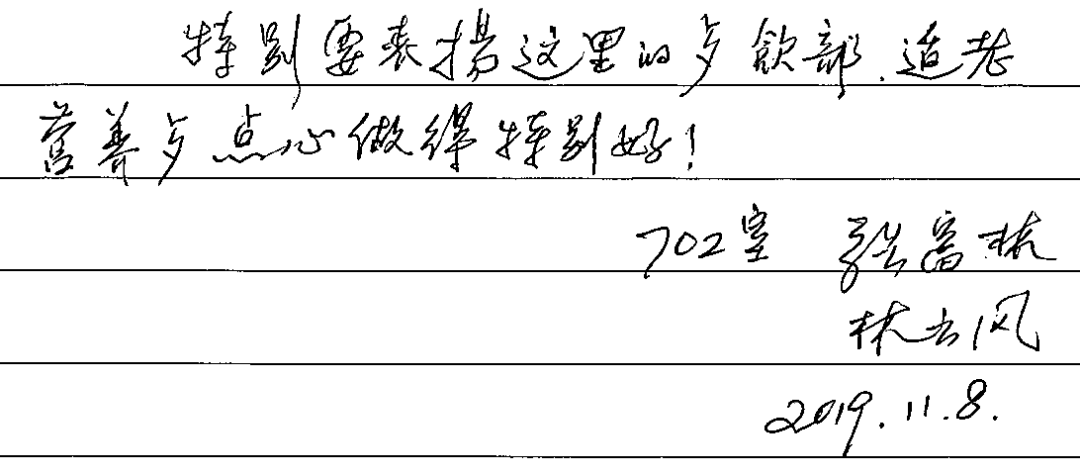 特别要表扬这里的歺饮部.适老
营养歺点心做得特别好!
702室 张富林
林云风
2019.11.8.